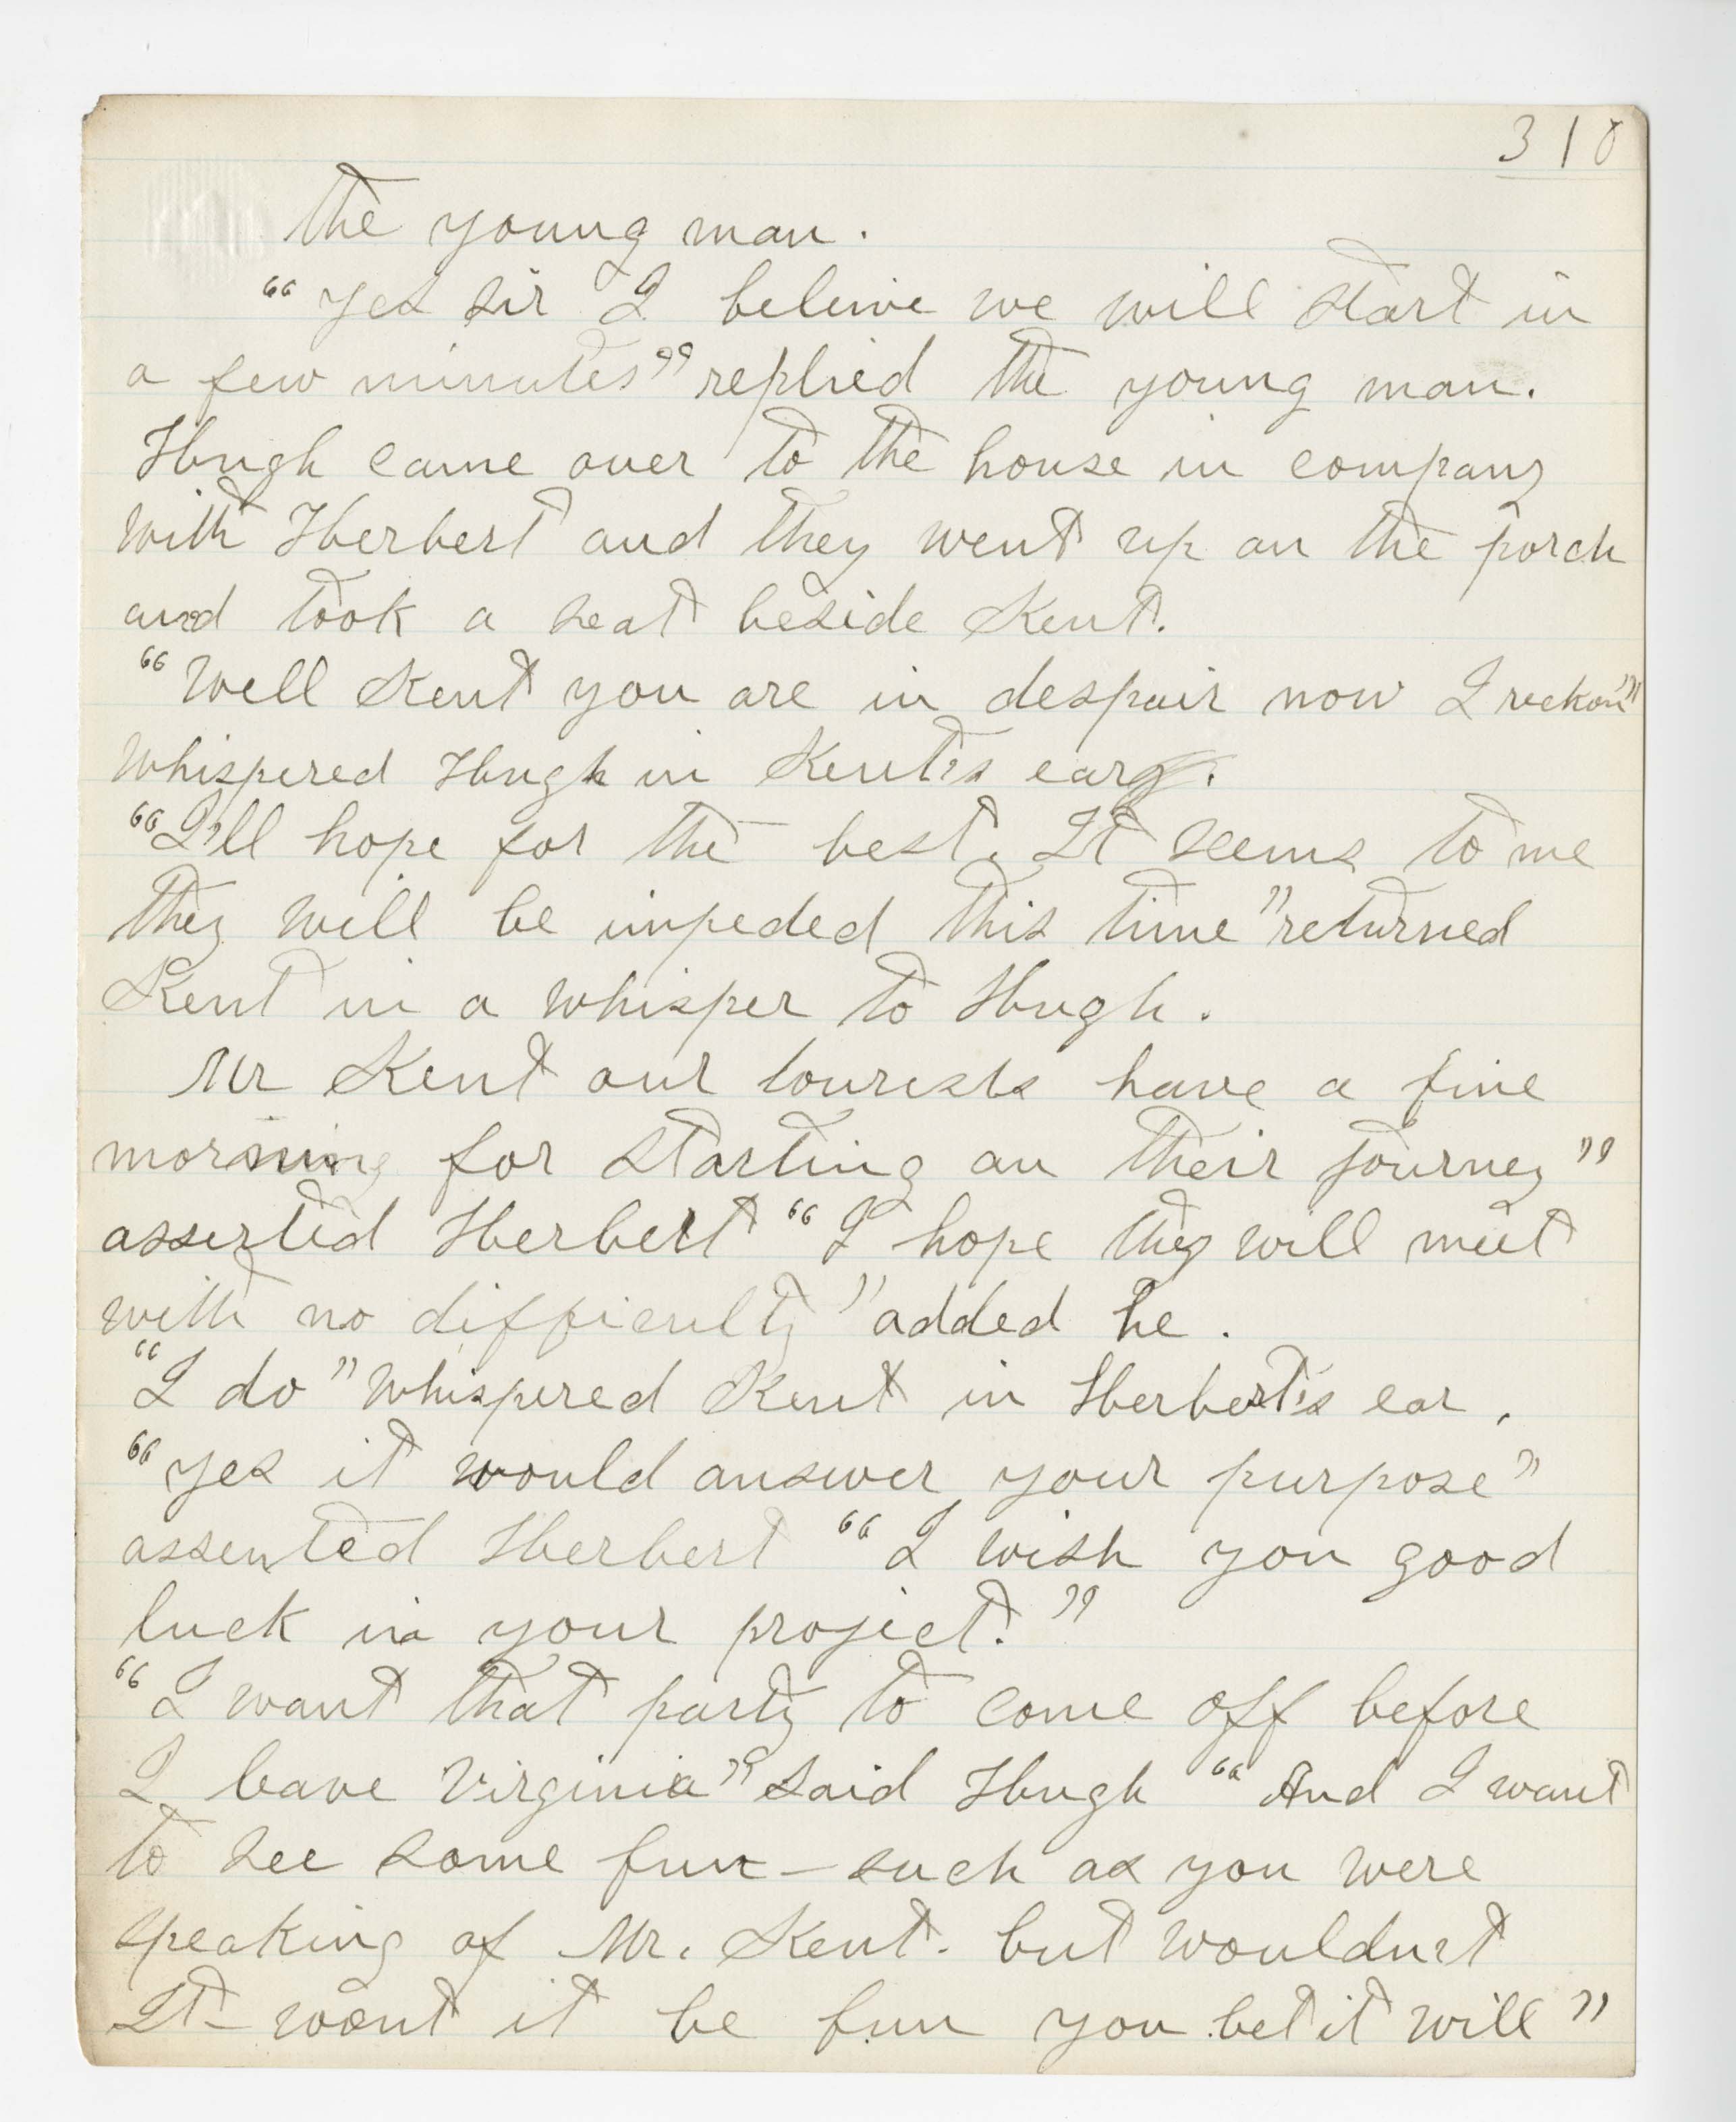 318
the young man.
"Yes sir I beleive we will start in
a few minutes" replied the young man.
Hugh came over to the house in company
with Herbert and they went up on the porch
and took a seat beside Kent.
"Well Kent you are in despair now I reckon"
whispered Hugh in Kent's ear.
"I'll hope for the best. It seems to me
they will be impeded this time" returned
Kent in a whisper to Hugh.
Mr Kent our tourists have a fine
morning for starting on their journey"
asserted Herbert "I hope they will meet
with no difficulty" added he.
"I do" whispered Kent in Herbert's ear.
"Yes it would answer your purpose"
assented Herbert "I wish you good
luck in your project."
"I want that party to come off before
I leave Virginia" said Hugh "And I want
to see some fun - such as you were
speaking of Mr. Kent. but wouldn't
It - wont it be fun you bet it will"